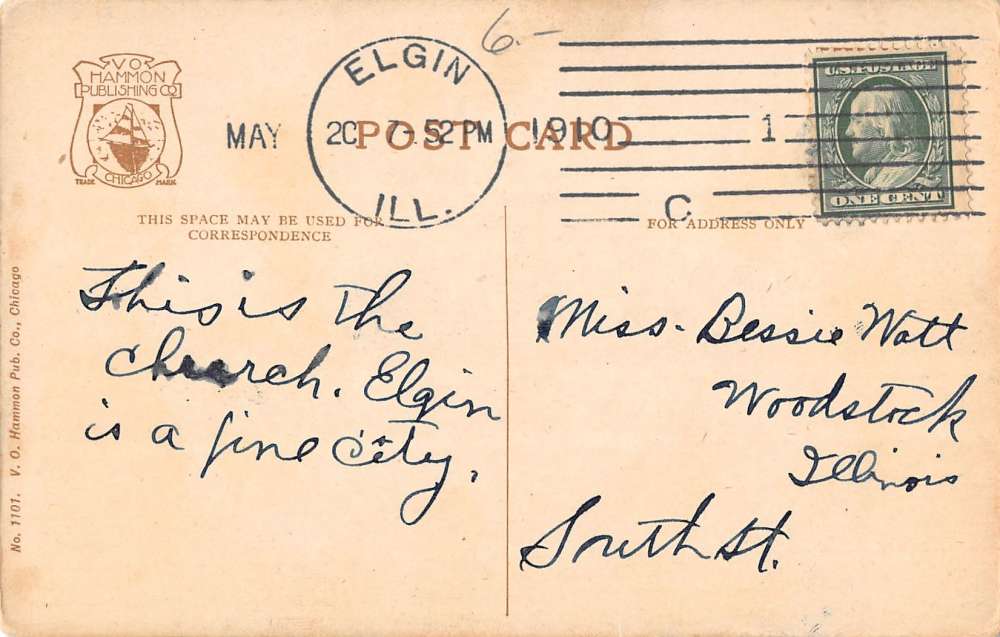 6.-
V O
HAMMON
PUBLISHING CO
CHICAGO
TRADE MARK
ELGIN
MAY 20 7-52 PM 1910
ILL.
POST CARD
1
C
U.S. POSTAGE
ONE CENT
THIS SPACE MAY BE USED FOR
CORRESPONDENCE
FOR ADDRESS ONLY
This is the
church. Elgin
is a fine city.
Miss. Bessie Watt
Woodstock
Illinois
South St.
No. 1101. V. O. Hammon Pub. Co., Chicago